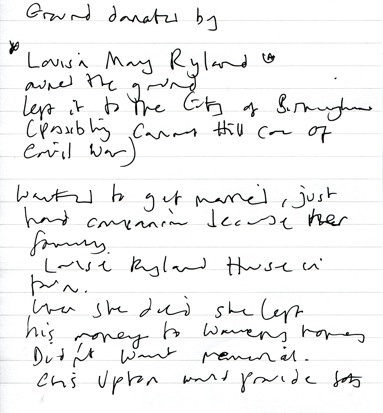 Ground donated by
Louisa May Ryland
owned the ground
left it to the City of Birmingham
(possibly Cannon Hill cos of
Civil War)
Wanted to get married, just
had companion because her
family.
Louise Ryland House in
town.
When she died she left
his money to womens homes
Didn't want memorial.
Chris Upton would provide